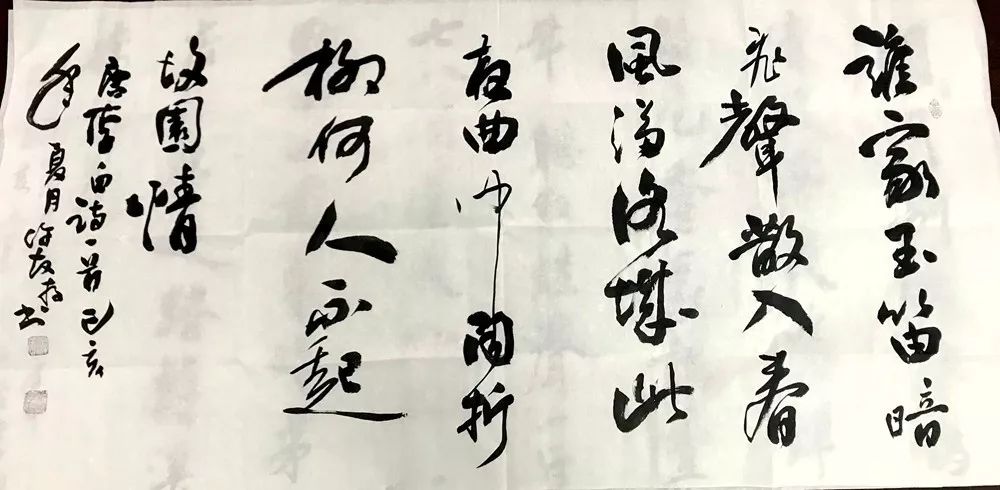 誰家玉笛暗
飛聲散入春
風滿洛城此
夜曲中聞折
柳何人不起
故園情
唐李白詩一首己亥
年夏月许友书